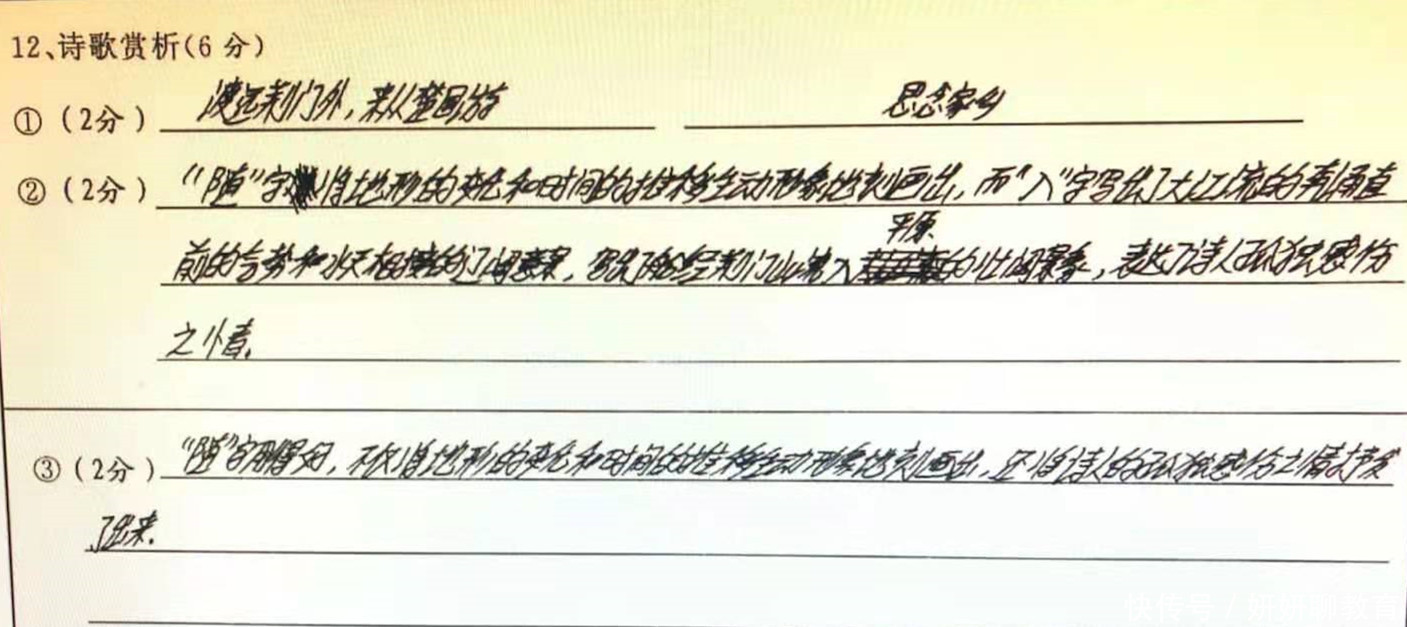 12、诗歌赏析(6 分)
①（2分） 渡远荆门外，来从楚国游 思念家乡
②（2分） “随”字将地形的变化和时间的推移生动形象地刻画出，而“入”字写出了大江流的奔涌直
平原
前的气势和水天相接的辽阔意景，写出了 经荆门山流入 的壮阔景象，表达了诗人孤独感伤
之情。
③（2分） “随”字用得好，不仅将地形的变化和时间的推移生动形象地刻画出，还将诗人的孤独感伤之情抒发
了出来.
快传号 / 妍妍聊教育